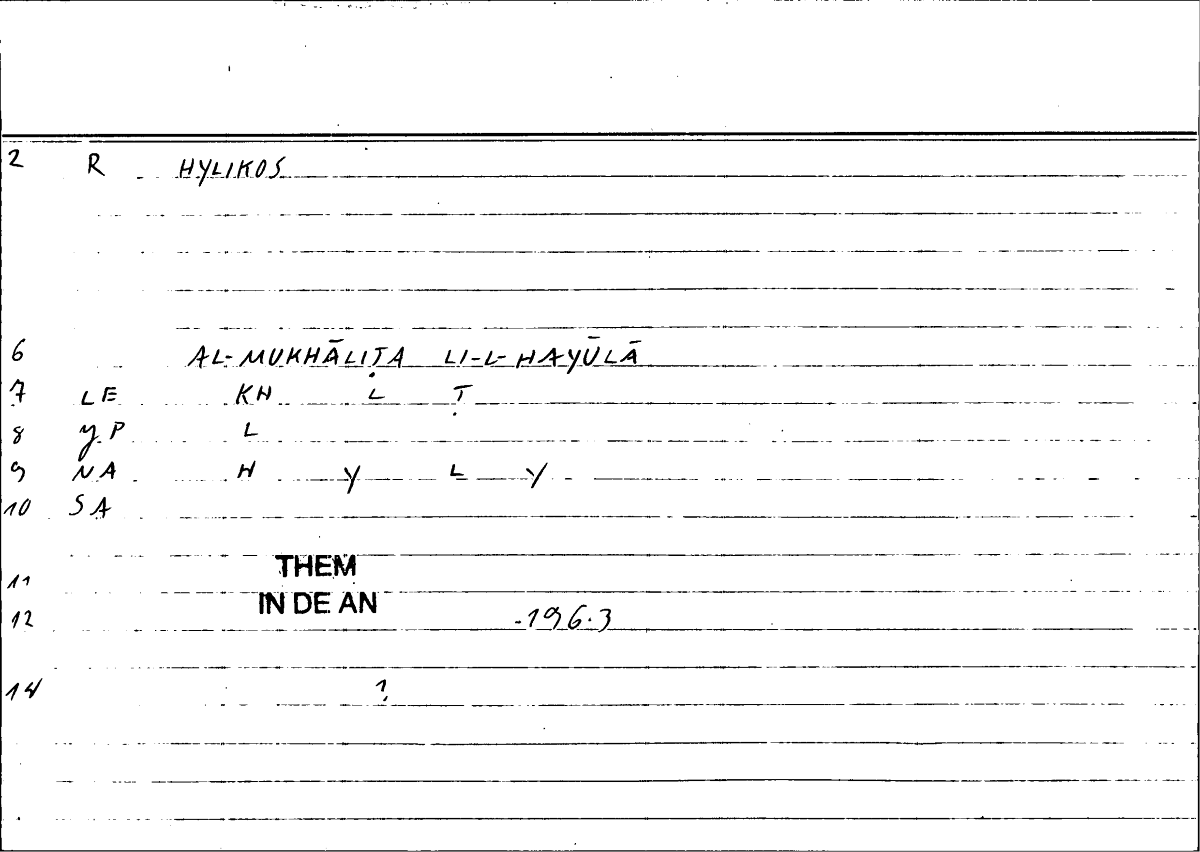 2 R HYLIKOS
6 AL-MUKHĀLIṬA LI-L-HAYŪLĀ
7 LE KH L Ṭ
8 YP L
9 NA H Y L Y
10 SA
THEM
11
IN DE AN
12 -196.3
14 ?